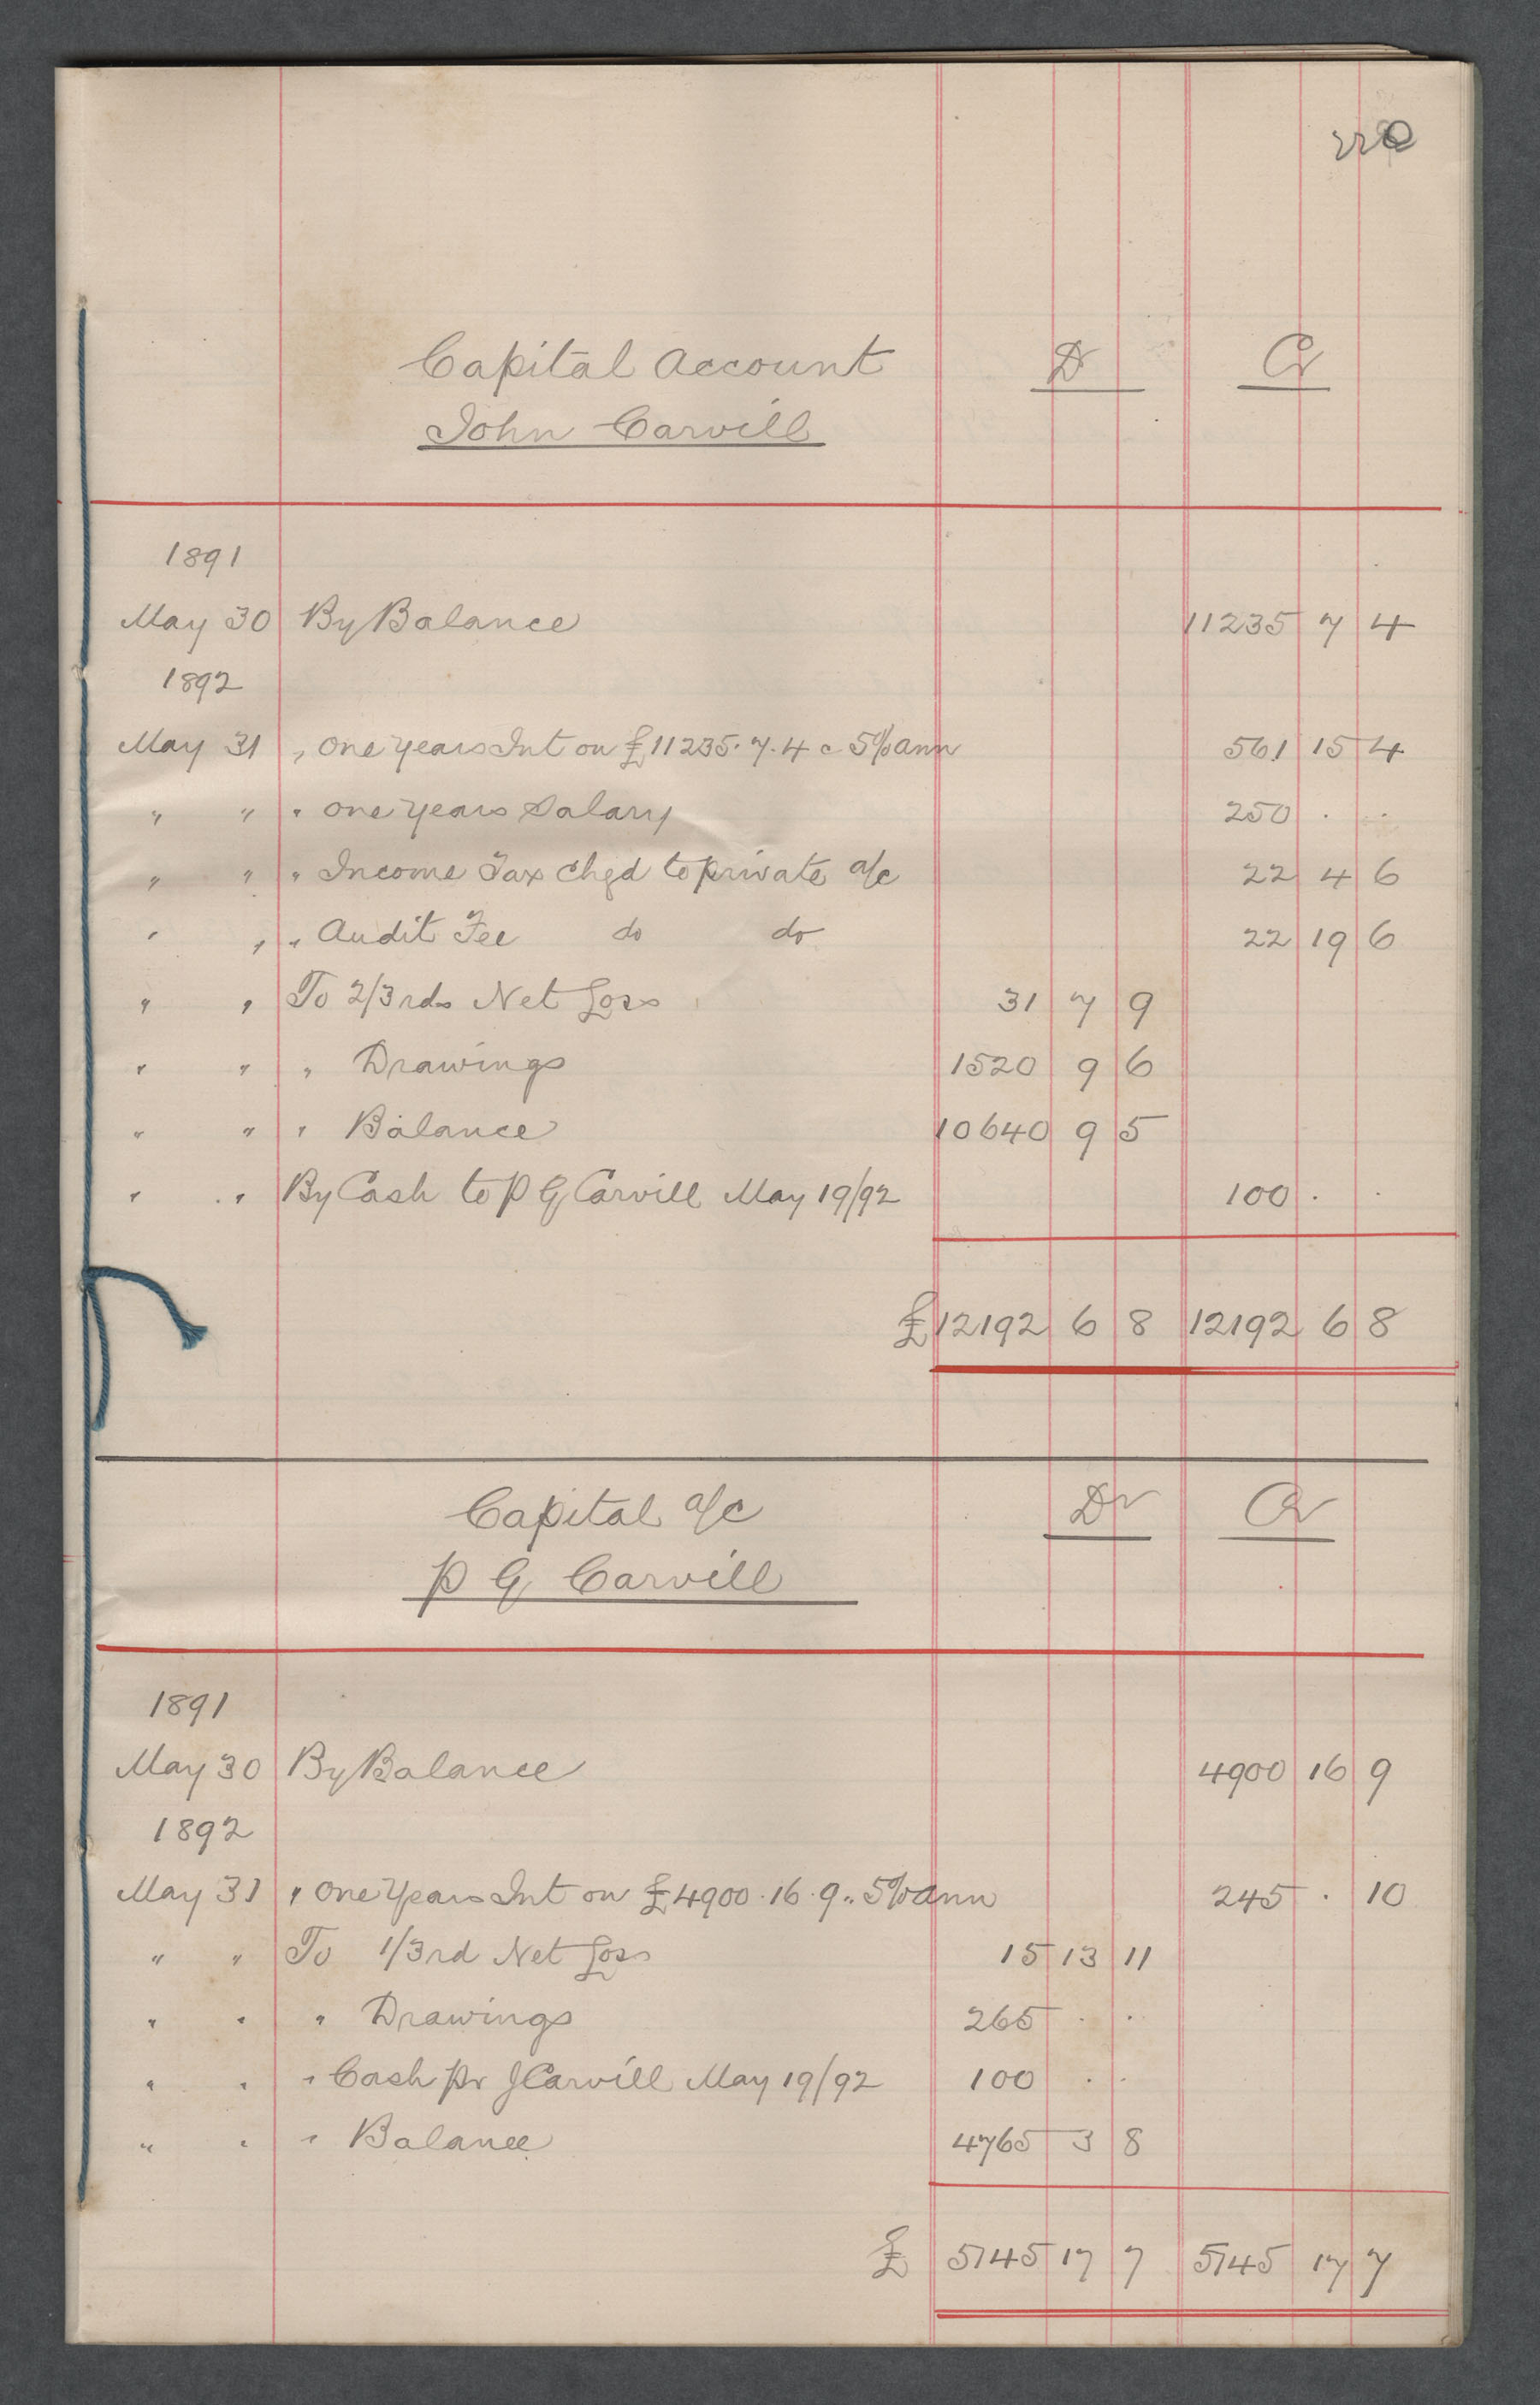 220
Capital Account Dr Cr
John Carvill
1891
May 30 By Balance 11235 7 4
1892
May 31 " One Years Int on £11235.7.4 @ 5% ann 561 15 4
" " " One Years Salary 250 . .
" " " Income Tax Chgd to private a/c 22 4 6
" " " Audit Fee do do 22 19 6
" " To 2/3rds Net Loss 31 7 9
" " " Drawings 1520 9 6
" " " Balance 10640 9 5
" " By Cash to P G Carvill May 19/92 100 . .
£ 12192 6 8 12192 6 8
Capital a/c Dr Cr
P G Carvill
1891
May 30 By Balance 4900 16 9
1892
May 31 " One Years Int on £4900.16.9 .. 5% ann 245 . 10
" " To 1/3rd Net Loss 15 13 11
" " " Drawings 265 . .
" " " Cash pr J Carvill May 19/92 100 . .
" " " Balance 4765 3 8
£ 5145 17 7 5145 17 7